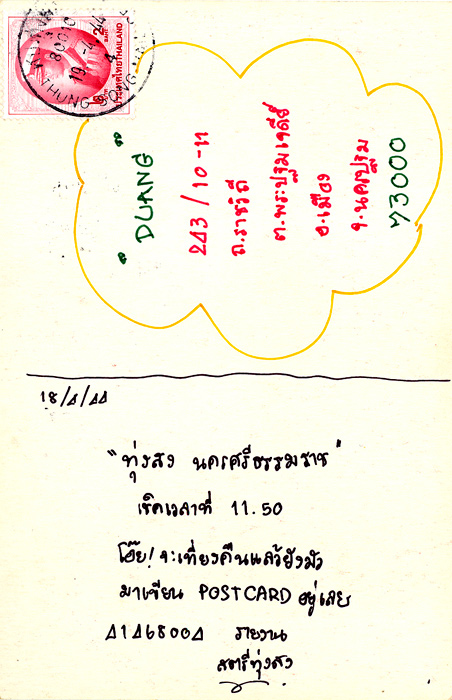 THUNG SONG
80010
19 -4 44
ประเทศไทย THAILAND
" DUANG "
243/10-11
ถ.ราชวิถี
ต.พระปฐมเจดีย์
อ.เมือง
จ.นครปฐม
73000
18/4/44
"ทุ่งสง นครศรีธรรมราช"
เช็คเวลาที่ 11.50
โอ๊ย! จะเที่ยงคืนแล้วยังมัว
มาเขียน POSTCARD อยู่เลย
41468004 รายงาน
สตรีทุ่งสง